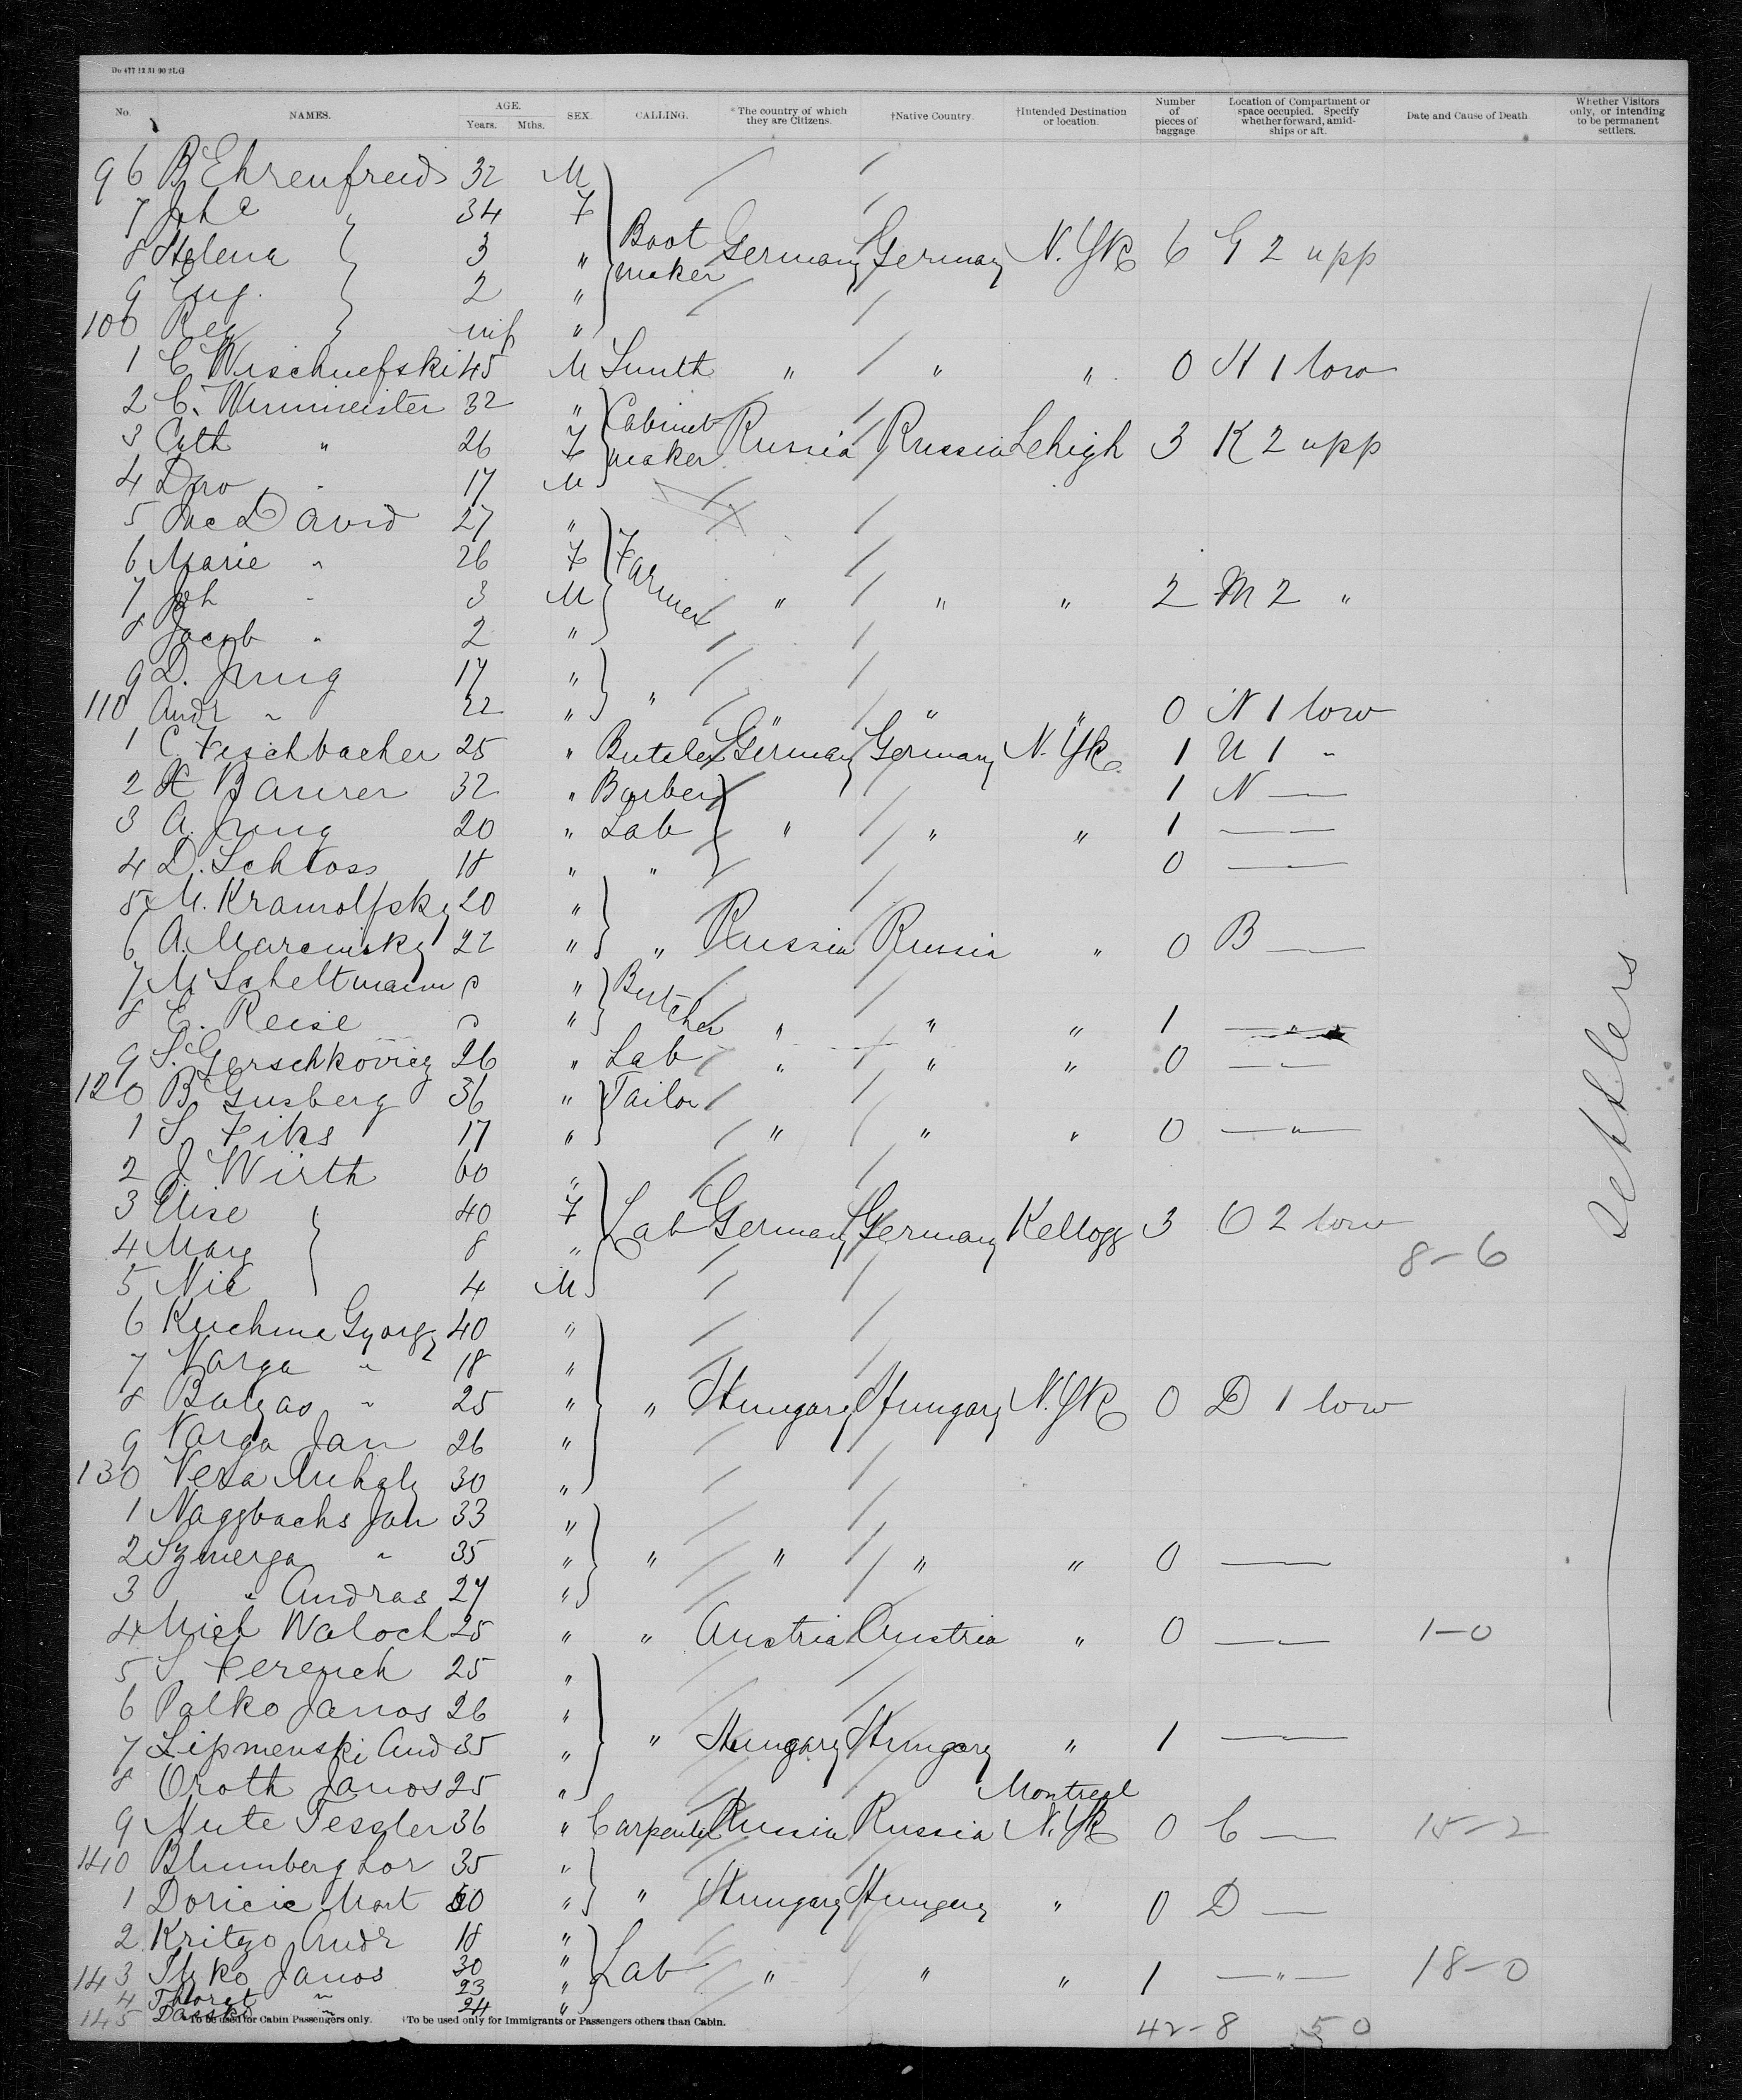 Do 477 12 31 90 2LG
No. NAMES. AGE. Years. Mths. SEX. CALLING. *The country of which they are Citizens. †Native Country. †Intended Destination or location. Number of pieces of baggage. Location of Compartment or space occupied. Specify whether forward, amidships or aft. Date and Cause of Death. Whether Visitors only, or intending to be permanent settlers.
96 B Ehrenfreids 32 M
7 34 F
8 Helena 3 " Boot maker Germany Germany N. Yk 6 G 2 upp
9 Eug. 2 "
100 Reg inf "
1 C Wischnefski 45 M Smith " " " 0 H 1 low
2 C. Wurmmeister 32 "
3 Cath " 26 F Cabinet maker Russia Russia Lehigh 3 K 2 upp
4 " 17 M
5 Jac David 27 "
6 Marie " 26 F Farmer
7 Joh " 3 M " " " 2 M 2 "
8 Jacob " 2 "
9 D. Jung 17 "
110 Andr " 22 " " " " " 0 N 1 low
1 C Fischbacher 25 " Butcher Germany Germany N. Yk 1 U 1 "
2 K Baurer 32 " Barber 1 N —
3 A. Jung 20 " Lab " " " 1 — " —
4 D. Schloss 18 " " 0 — " —
5 M. Kramolfsky 20 "
6 A. Marcinsky 22 " " Russia Russia " 0 B —
7 M Scheltmann " Butcher
8 E. Reise " " " " 1 — " —
9 S. Gerschkovicz 26 " Lab " " " 0 — " —
120 B Gusberg 36 " Tailor
1 S Fiks 17 " " " " 0 — " —
2 J Wirth 60 "
3 Elise 40 F Lab Germany Germany Kellogg 3 O 2 low
4 Marg 8 " 8-6
5 Nic 4 M
6 Kuchma Gyorgy 40 "
7 Varga " 18 "
8 Balzas " 25 " " Hungary Hungary N. Yk 0 D 1 low
9 Varga Jan 26 "
130 Vesa Mihaly 30 "
1 Naggbachs Jan 33 "
2 Szmerga " 35 " " " " " 0 — " —
3 " Andras 27 "
4 Mich Waloch 25 " " Austria Austria " 0 — " — 1-0
5 S Ferench 25 "
6 Palko Janos 26 "
7 Lipmenski And 35 " " Hungary Hungary " 1 — " —
8 Oroth Janos 25 " Montreal
9 Mute Tessler 36 " Carpenter Russia Russia N. Yk 0 C — 15-2
140 Blumberg Lor 35 "
1 Doricic Mart 60 " " Hungary Hungary " 0 D —
2 Kritzo Andr 18 "
143 Janos 30 " Lab " " " 1 — " — 18-0
4 " 23 "
145 " 24 "
settlers
*To be used for Cabin Passengers only. †To be used only for Immigrants or Passengers others than Cabin.
42-8 50